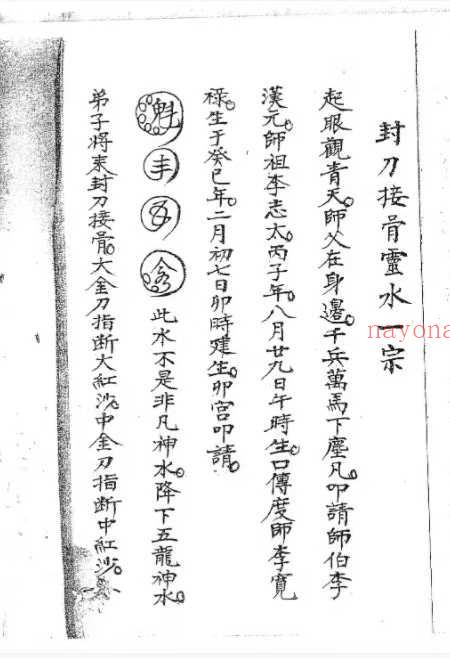 封刀接骨靈水一宗
起眼觀青天。師父在身邊。千兵萬馬下塵凡。叩請師伯李
漢元。師祖李志太。丙子年。八月廿九日午時生。口傳度師李寬
祿。生于癸巳年。二月初七日卯時建生。卯宮叩請。
魁 此水不是非凡神水。降下五龍神水。
弟子將來封刀接骨。大金刀指断大紅沙。中金刀指断中紅沙。
nayona